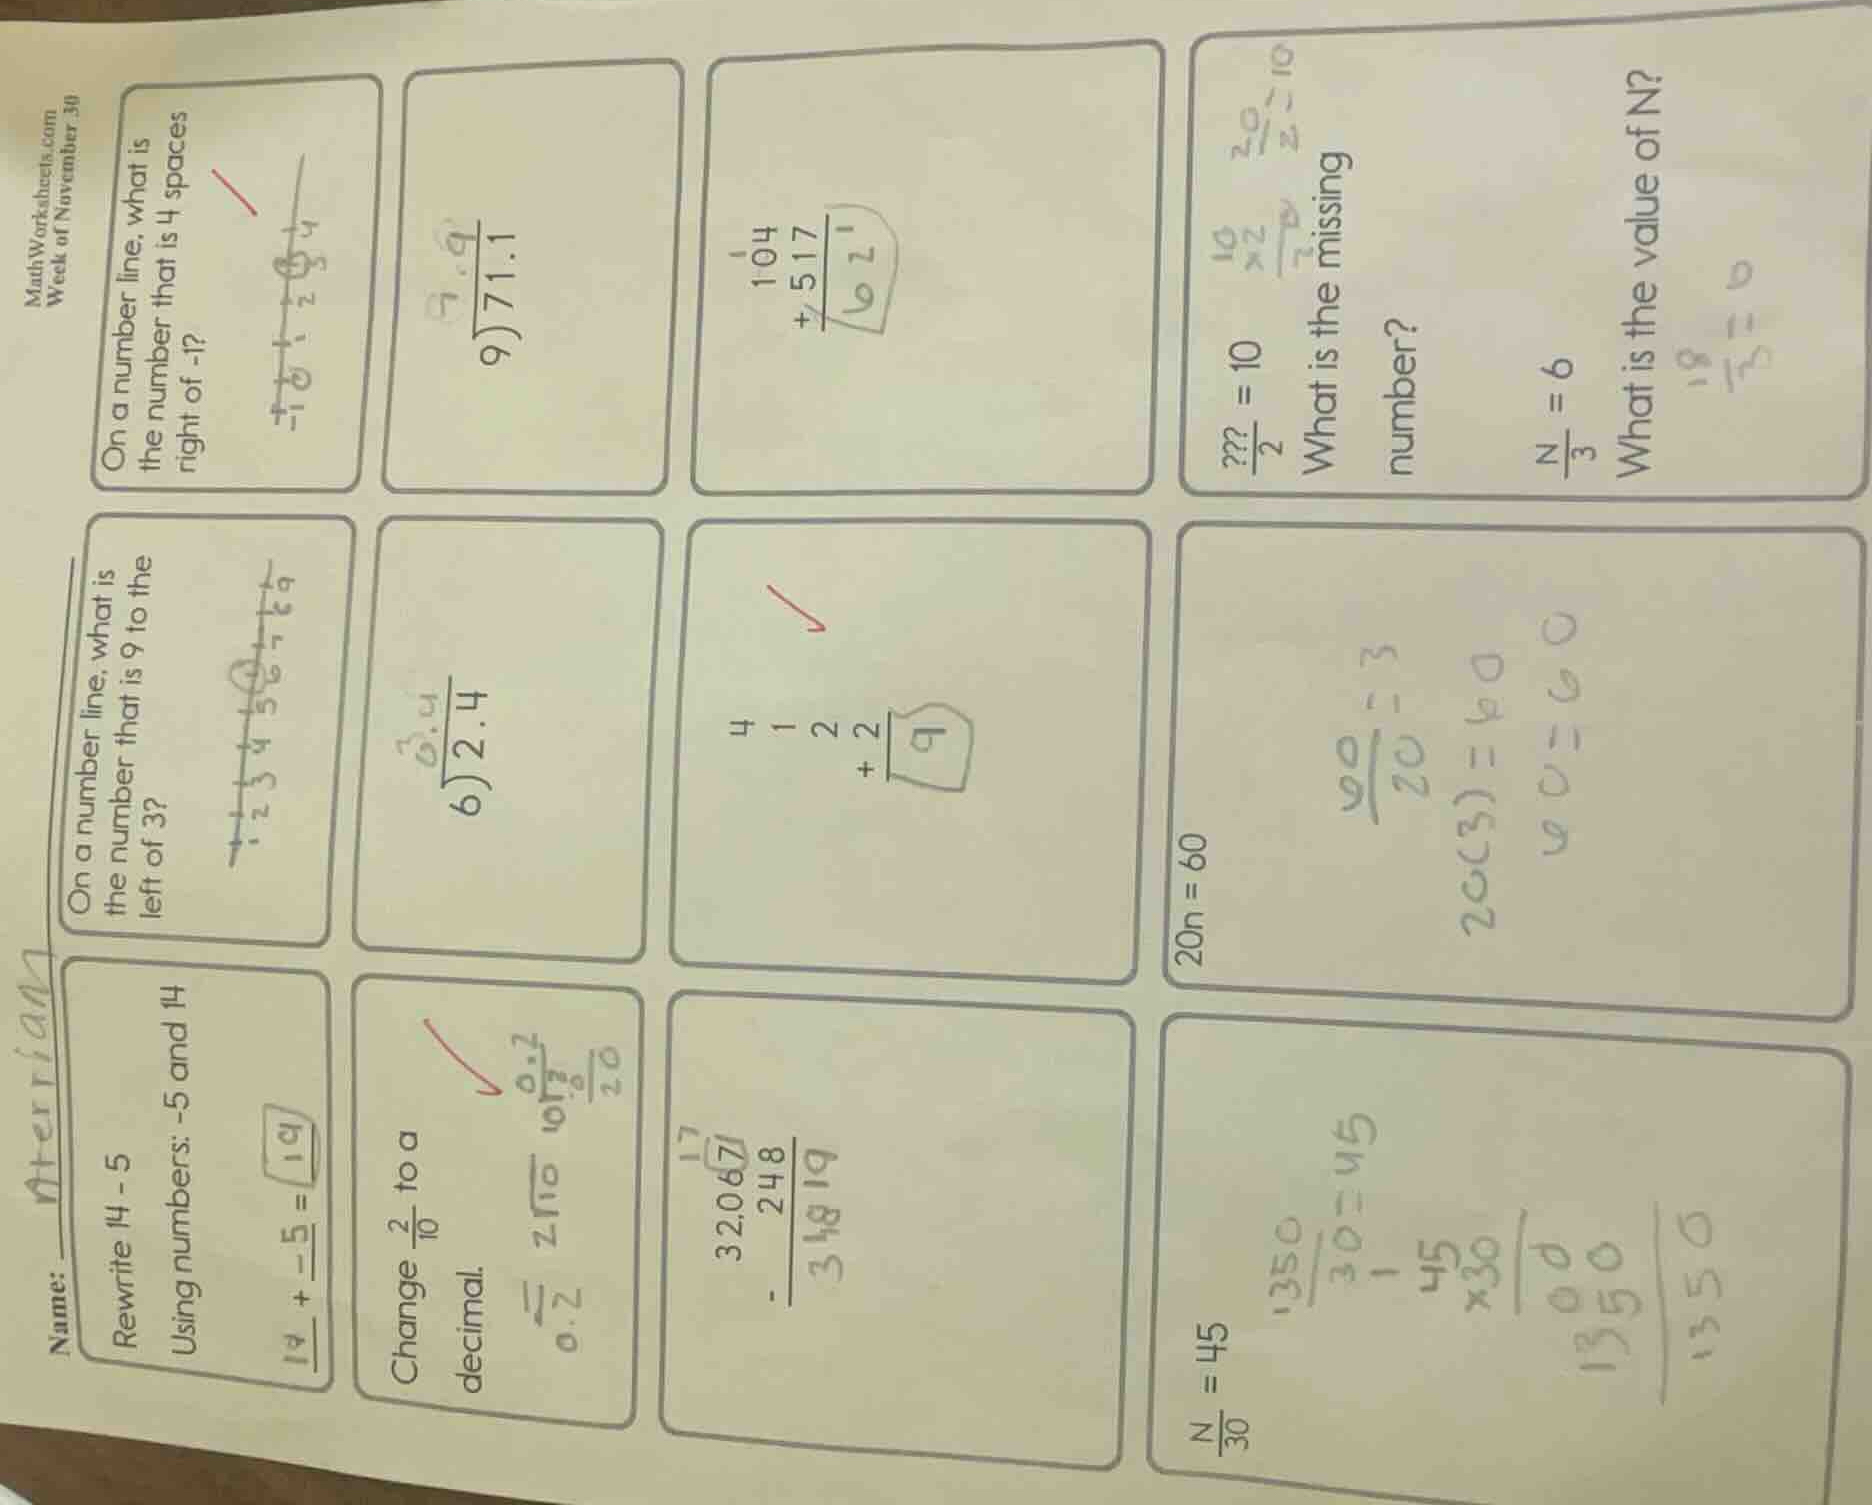 MathWorksheets.com
Name: Aterrian
Week of November 30
Rewrite 14 - 5
Using numbers: -5 and 14
14 + -5 = 19
On a number line, what is
the number that is 9 to the
left of 3?
1 2 3 4 5 6 7 8 9
On a number line, what is
the number that is 4 spaces
right of -1?
-1 0 1 2 3 4
Change 2/10 to a
decimal.
0.2
2√10
0.2
0
20
0.4
6)2.4
7.9
9)71.1
17
32,067
- 248
4
1
2
+ 2
9
1
104
+ 517
621
N/30 = 45
1350
30 = 45
1
45
x30
00
1350
1350
20n = 60
60/20 = 3
20(3) = 60
60 = 60
???/2 = 10
10
x2
20
20/2 = 10
What is the missing
number?
N/3 = 6
What is the value of N?
18